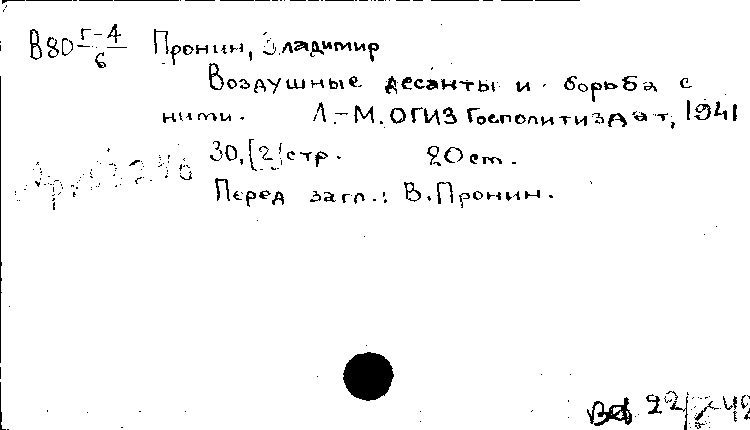 В80 Г-4/6 Пронин, Владимир
Воздушные десанты и борьба с
ними. Л.-М. ОГИЗ Госполитиздат, 1941
30, [2] стр. 20 cm.
Перед загл.: В. Пронин.